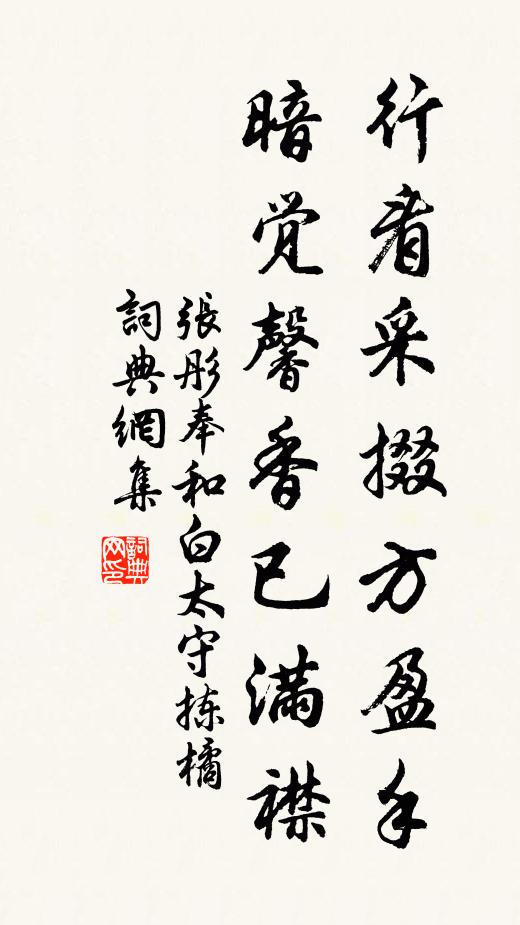 行看采掇方盈手
暗觉馨香已满襟
張彤奉和白太守拣橘
詞典網集
詞典網印